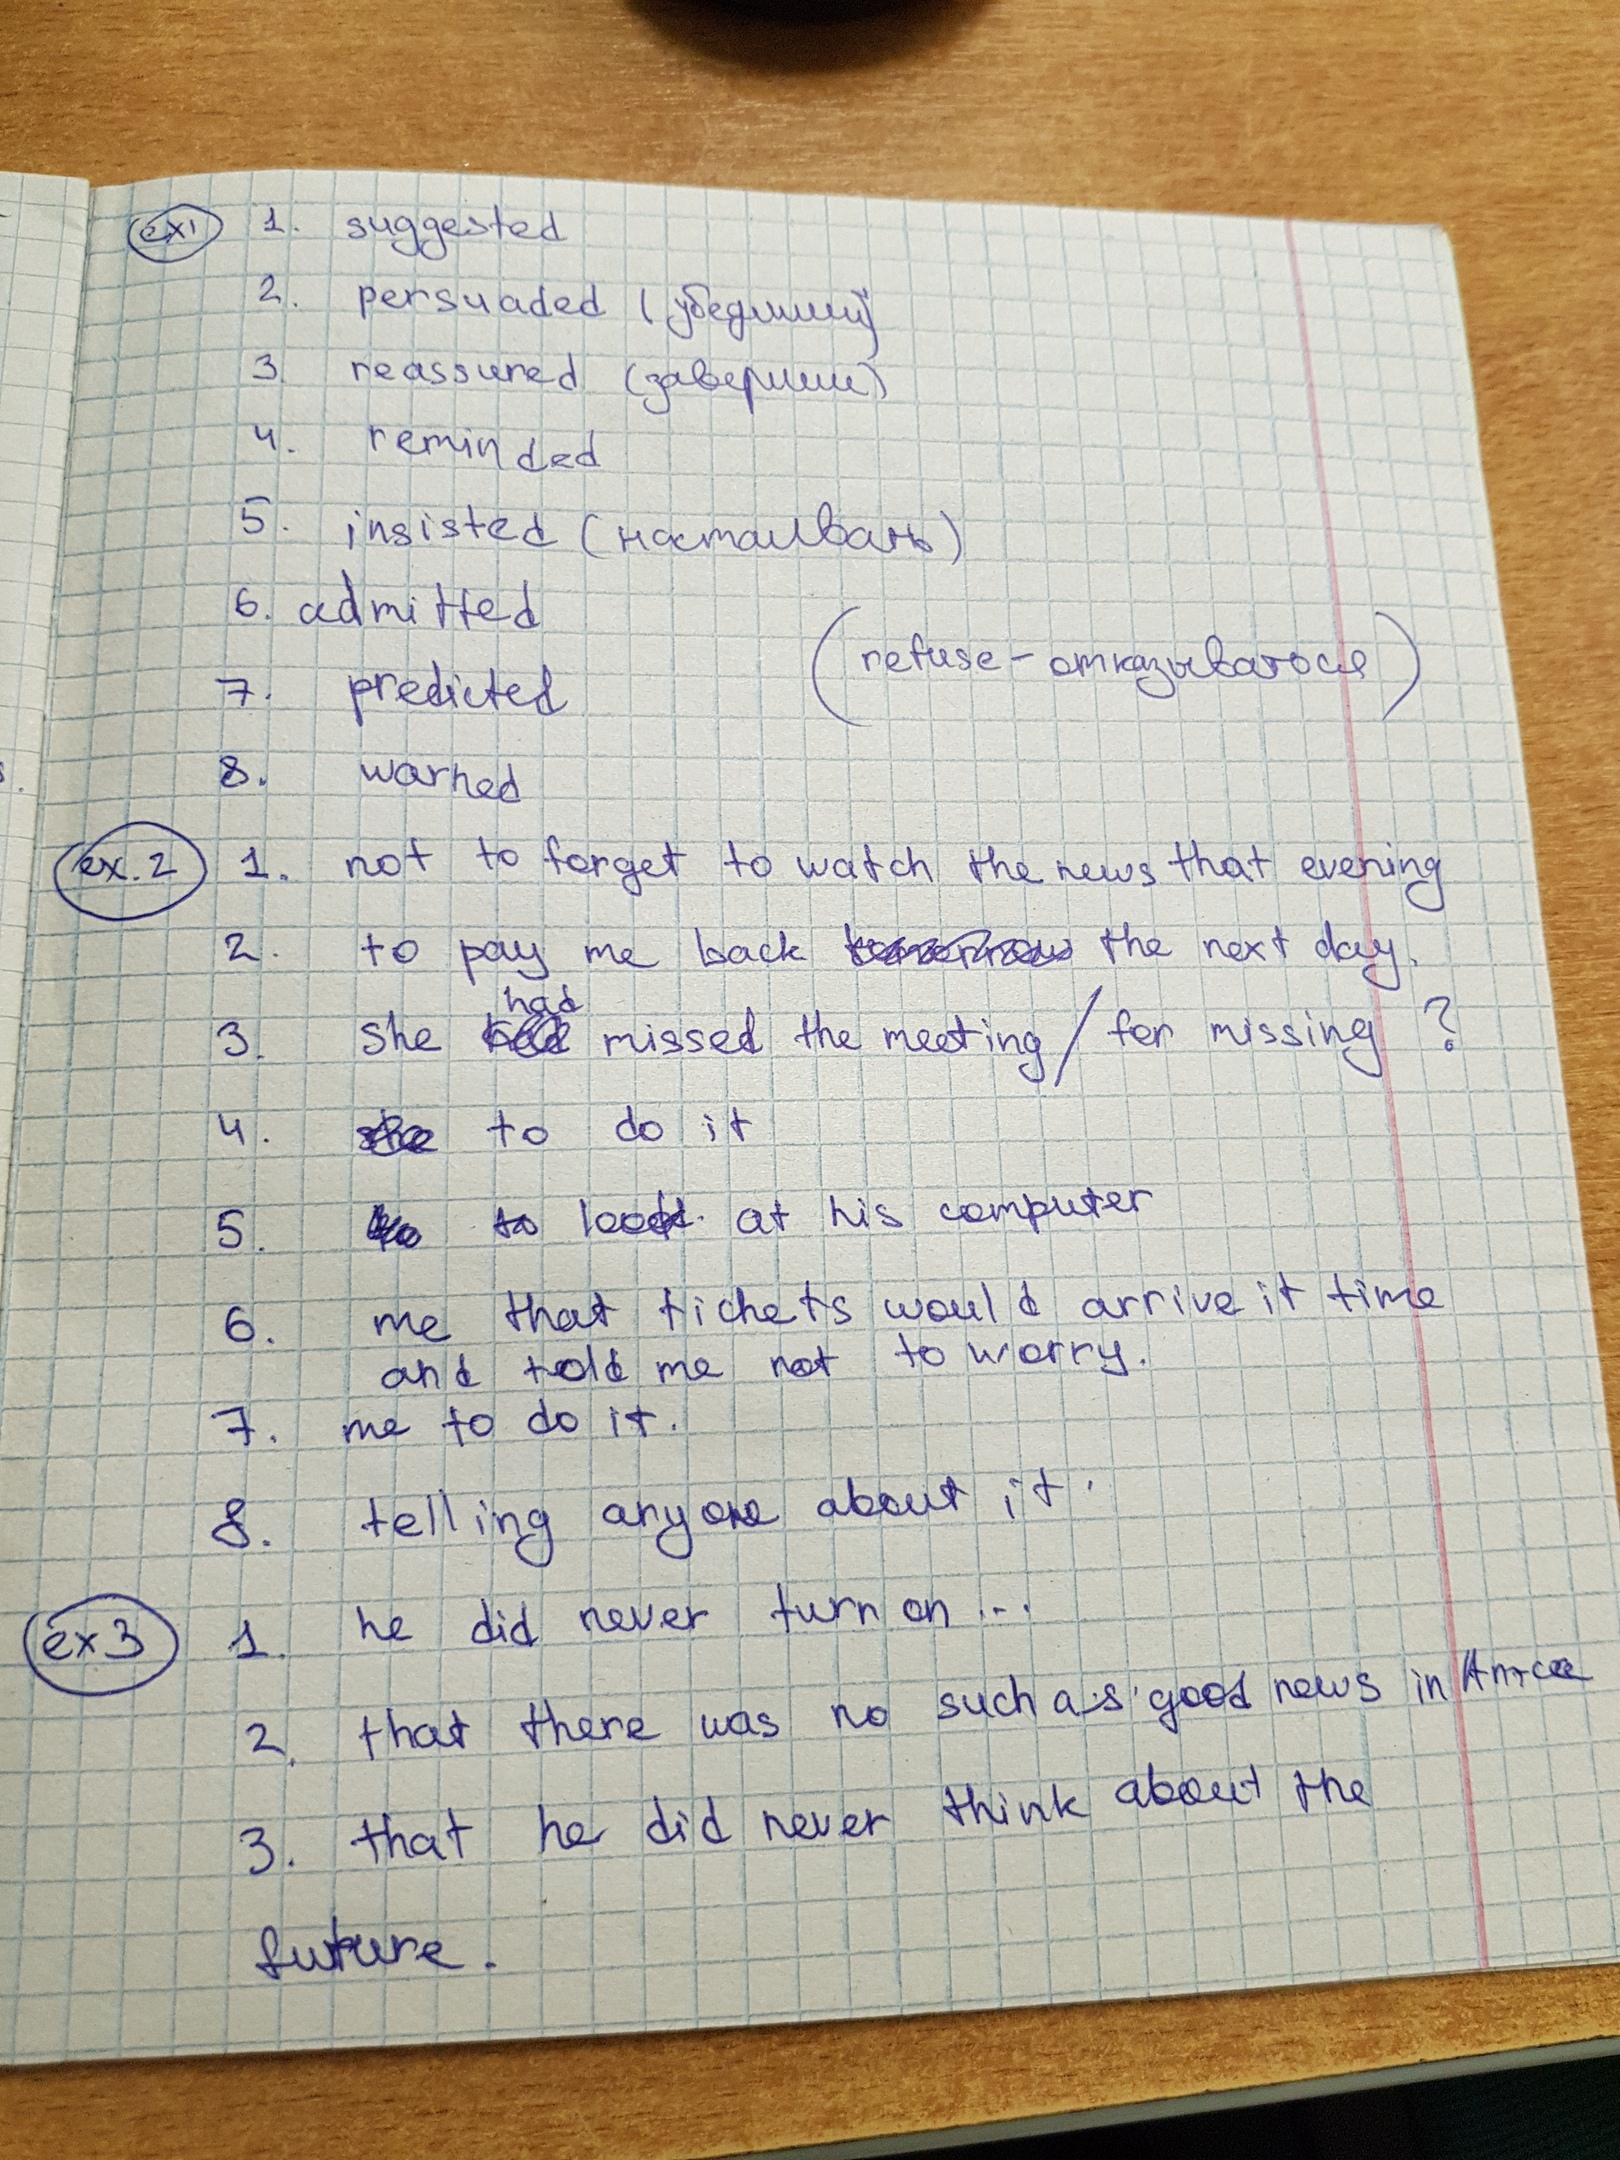 ex1 1. suggested
2. persuaded (убедивший)
3. reassured (заверили)
4. reminded
5. insisted (настаивать)
6. admitted
(refuse - отказываться)
7. predicted
8. warned
ex.2 1. not to forget to watch the news that evening
2. to pay me back the next day.
had
3. she missed the meeting / for missing ?
4. to do it
5. to look at his computer
6. me that tichets would arrive it time
and told me not to worry.
7. me to do it.
8. telling anyone about it.
ex3 1. he did never turn on ...
2. that there was no such as good news in
3. that he did never think about the
future.
s.